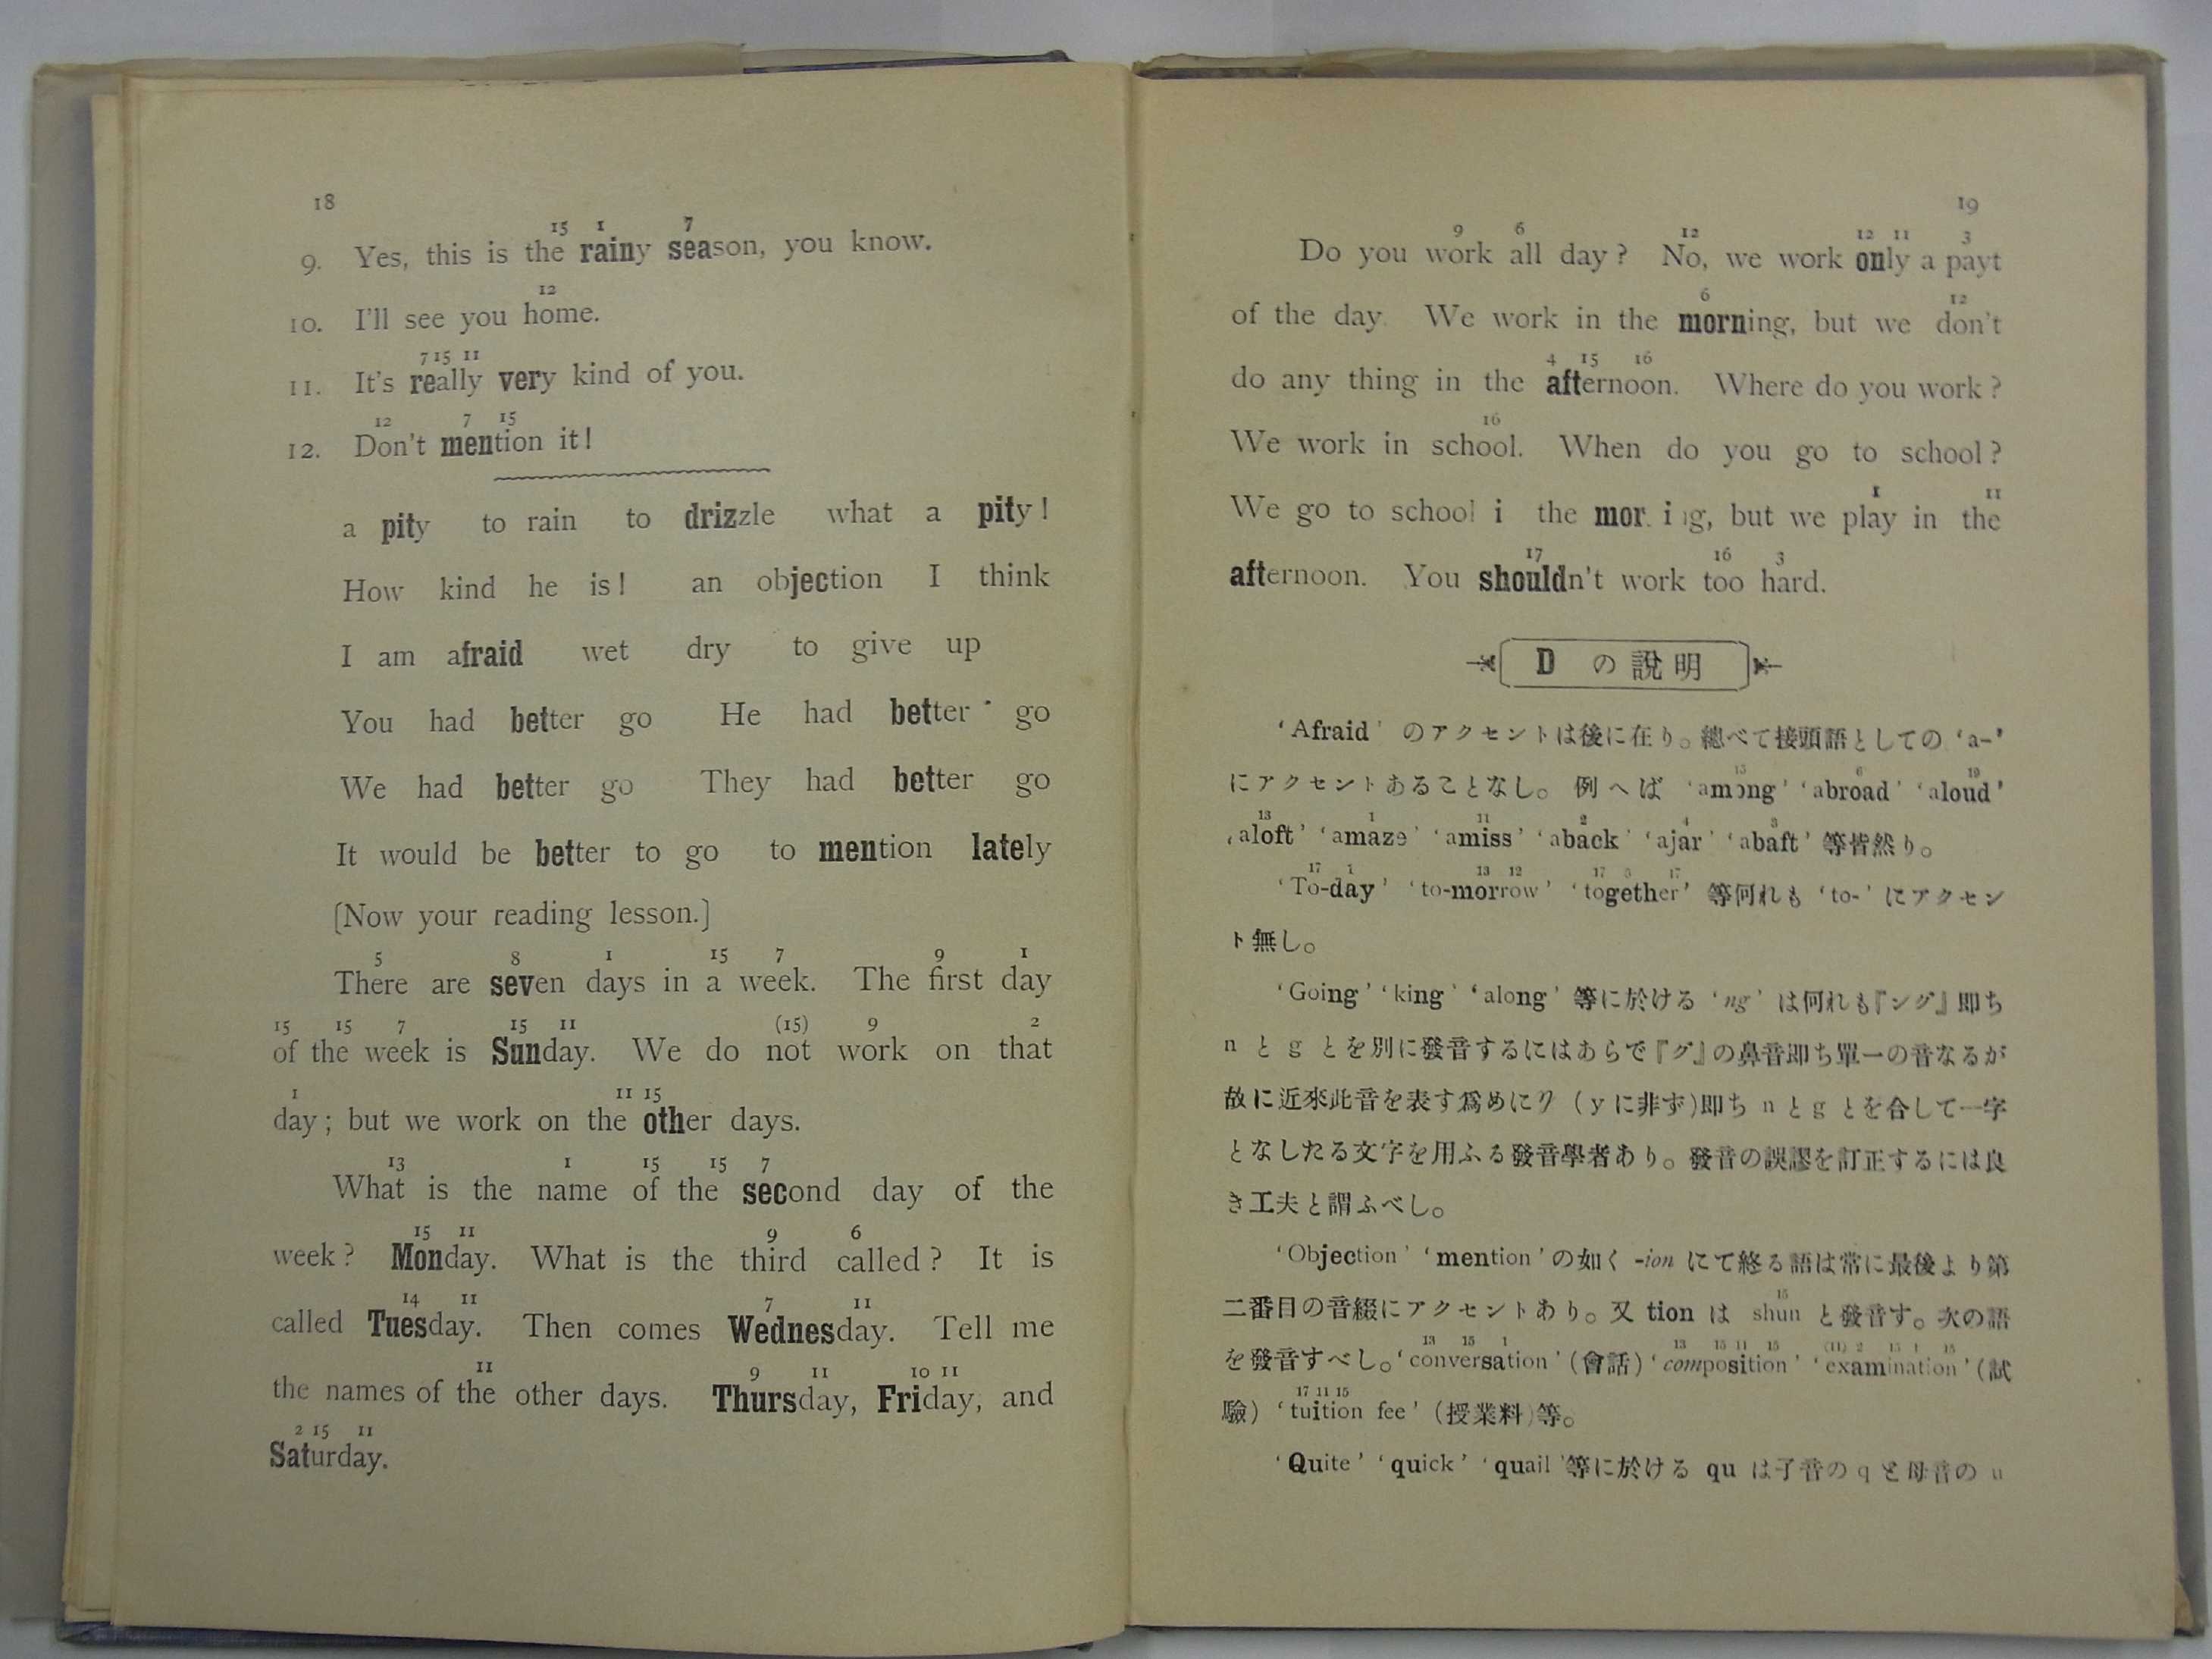 18
15 1 7
9. Yes, this is the rainy season, you know.
12
10. I'll see you home.
7 15 11
11. It's really very kind of you.
12 7 15
12. Don't mention it!
a pity to rain to drizzle what a pity!
How kind he is! an objection I think
I am afraid wet dry to give up
You had better go He had better go
We had better go They had better go
It would be better to go to mention lately
[Now your reading lesson.]
5 8 1 15 7 9 1
There are seven days in a week. The first day
15 15 7 15 11 (15) 9 2
of the week is Sunday. We do not work on that
1 11 15
day; but we work on the other days.
13 1 15 15 7
What is the name of the second day of the
15 11 9 6
week? Monday. What is the third called? It is
14 11 7 11
called Tuesday. Then comes Wednesday. Tell me
11 9 11 10 11
the names of the other days. Thursday, Friday, and
2 15 11
Saturday.
19
9 6 12 12 11 3
Do you work all day? No, we work only a payt
6 12
of the day. We work in the morning, but we don't
4 15 16
do any thing in the afternoon. Where do you work?
16
We work in school. When do you go to school?
1 11
We go to school i the mor. i ıg, but we play in the
17 16 3
afternoon. You shouldn't work too hard.
D の說明
'Afraid' のアクセントは後に在り。總べて接頭語としての 'a-'
15 6 19
にアクセントあることなし。例へば 'among' 'abroad' 'aloud'
13 1 11 2 4 3
'aloft' 'amaze' 'amiss' 'aback' 'ajar' 'abaft' 等皆然り。
17 1 13 12 17 5 17
'To-day' 'to-morrow' 'together' 等何れも 'to-' にアクセン
ト無し。
'Going' 'king' 'along' 等に於ける 'ng' は何れも『ング』即ち
n と g とを別に發音するにはあらで『グ』の鼻音即ち單一の音なるが
故に近來此音を表す爲めにŋ (y に非ず)即ち n と g とを合して一字
となしたる文字を用ふる發音學者あり。發音の誤謬を訂正するには良
き工夫と謂ふべし。
'Objection' 'mention' の如く -ion にて終る語は常に最後より第
15
二番目の音綴にアクセントあり。又 tion は shun と發音す。次の語
13 15 1 13 15 11 15 (11) 2 15 1 15
を發音すべし。'conversation' (會話) 'composition' 'examination' (試
17 11 15
驗) 'tuition fee' (授業料)等。
'Quite' 'quick' 'quail' 等に於ける qu は子音の q と母音の u